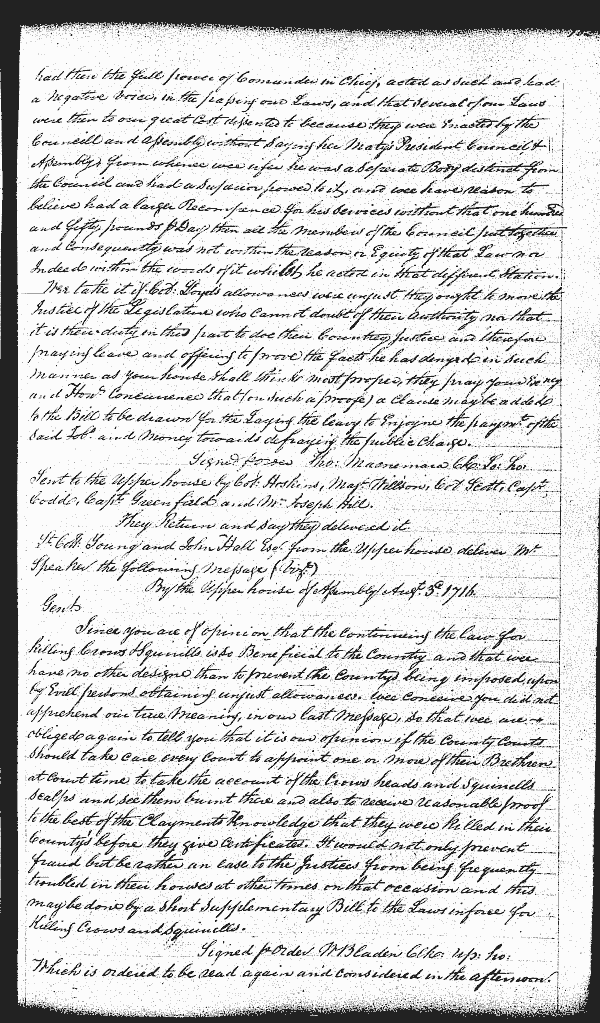 had then the full power of Comander in Chief, acted as such and had
a Negative Voice, in the passing our Laws, and that several of our Laws
were then to our great Cost disented to because they were Enacted by the
Councill and Assembly without saying her Matys President Council &
Assembly; from whence wee infer he was a Seperate Body distinct from
the Council and had a Superior power to it, and wee have reason to
believe had a larger Recompence for his Services without that one hundred
and fifty pounds p Day then all the members of the Council put together
and Consequently was not within the reason or Equity of that Law nor
Indeed within the words of it whilst he acted in that different Station.
Wee take it if Col. Loyds allowances were unjust they ought to move the
Justice of the Legislature who Cannot doubt of their Authority nor that
it is their duty in this part to doe their Countrey Justice and therefore
praying leave and offering to prove the facts he has denyed in such
manner as your house shall think most proper, they pray your
and Honrs Concurrence that (on such a proofe) a Clause may be added
to the Bill to be drawn for the Laying the leavy to Enjoyne the paymt of the
said Tobo and Money towards defraying the publick Charge.
Signed p order Tho: Macnemara Clk. Lo: ho:
Sent to the Upper house by Col. Hoskins, Majr Willson, Col Scott, Capt.
Codd, Capt Greenfield and Mr Joseph Hill.
They Return and say they delivered it
Lt Coll. Young and John Hall Esqr from the Upper house deliver Mr
Speaker the following Message (Vizt)
By the Upper house of Assembly Augt 3d 1716
Gents
Since you are of opinion that the Continueing the law for
killing Crows & Squirills is so Beneficial to the Country and that wee
have no other designe than to prevent the Countys being imposed upon
by Evill persons obtaining unjust allowances. Wee conceive you did not
apprehend our true Meaning, in our last Message, so that wee are
obliged again to tell you that it is our opinion if the County Courts
should take care every Court to appoint one or more of their Brethren
at Court time to take the account of the Crows heads and Squirills
scalps and see them burnt there and also to receive reasonable proof
to the best of the Claymants Knowledge that they were killed in their
County's before they give Certificates. It would not only prevent
fraud but be rather an ease to the Justices from being frequently
troubled in their houses at other times on that occasion and this
may be done by a Short Supplementary Bill to the Laws inforce for
Killing Crows and Squirills.
Signed p Order WBladen Clk: up: ho:
Which is ordered to be read again and considered in the afternoon.